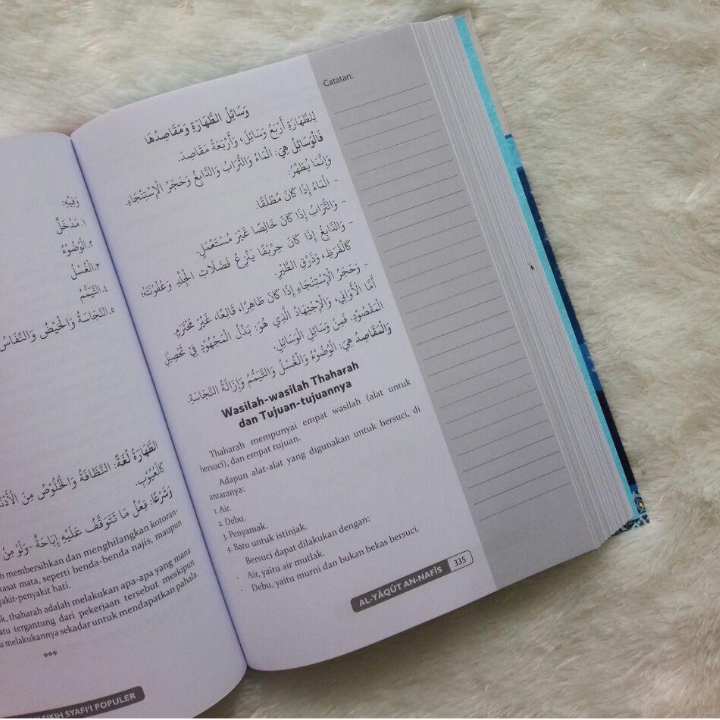 وَفِيْهِ:
١. مَدْخَلٌ
٢. الْوُضُوْءُ
٣. الْغُسْلُ
٤. التَّيَمُّمُ
٥. النَّجَاسَةُ وَالْحَيْضُ وَالنِّفَاسُ
الطَّهَارَةُ لُغَةً: النَّظَافَةُ وَالْخُلُوْصُ مِنَ
كَالْعُيُوْبِ.
وَشَرْعًا: فِعْلُ مَا تَتَوَقَّفُ عَلَيْهِ إِبَاحَةٌ -وَلَوْ مِنْ
membersihkan dan menghilangkan kotoran-
kasat mata, seperti benda-benda najis, maupun
penyakit-penyakit hati.
thaharah adalah melakukan apa-apa yang mana
tergantung dari pekerjaan tersebut meskipun
melakukannya sekadar untuk mendapatkan pahala.
***
FIKIH SYAFI'I POPULER
Catatan:
وَسَائِلُ الطَّهَارَةِ وَمَقَاصِدُهَا
لِلطَّهَارَةِ أَرْبَعُ وَسَائِلَ، وَأَرْبَعَةُ مَقَاصِدَ.
فَالْوَسَائِلُ هِيَ: الْمَاءُ وَالتُّرَابُ وَالدَّابِغُ وَحَجَرُ الْاِسْتِنْجَاءِ.
وَإِنَّمَا يُطَهِّرُ:
- الْمَاءُ إِذَا كَانَ مُطْلَقًا.
- وَالتُّرَابُ إِذَا كَانَ خَالِصًا غَيْرَ مُسْتَعْمَلٍ.
- وَالدَّابِغُ إِذَا كَانَ حِرِّيْفًا يَنْزِعُ فَضَلَاتِ الْجِلْدِ وَعُفُوْنَتَهُ؛
كَالْقَرَظِ، وَذَرْقِ الطَّيْرِ.
- وَحَجَرُ الْاِسْتِنْجَاءِ إِذَا كَانَ طَاهِرًا، قَالِعًا، غَيْرَ مُحْتَرَمٍ.
أَمَّا الْأَوَانِي، وَالْاِجْتِهَادُ الَّذِي هُوَ: بَذْلُ الْمَجْهُوْدِ فِيْ تَحْصِيْلِ
الْمَقْصُوْدِ. فَمِنْ وَسَائِلِ الْوَسَائِلِ.
وَالْمَقَاصِدُ هِيَ: الْوُضُوْءُ وَالْغُسْلُ وَالتَّيَمُّمُ وَإِزَالَةُ النَّجَاسَةِ.
Wasilah-wasilah Thaharah
dan Tujuan-tujuannya
Thaharah mempunyai empat wasilah (alat untuk
bersuci), dan empat tujuan.
Adapun alat-alat yang digunakan untuk bersuci, di
antaranya:
1. Air.
2. Debu.
3. Penyamak.
4. Batu untuk istinjak.
Bersuci dapat dilakukan dengan:
- Air, yaitu air mutlak.
- Debu, yaitu murni dan bukan bekas bersuci.
AL-YÂQÛT AN-NAFÎS 335